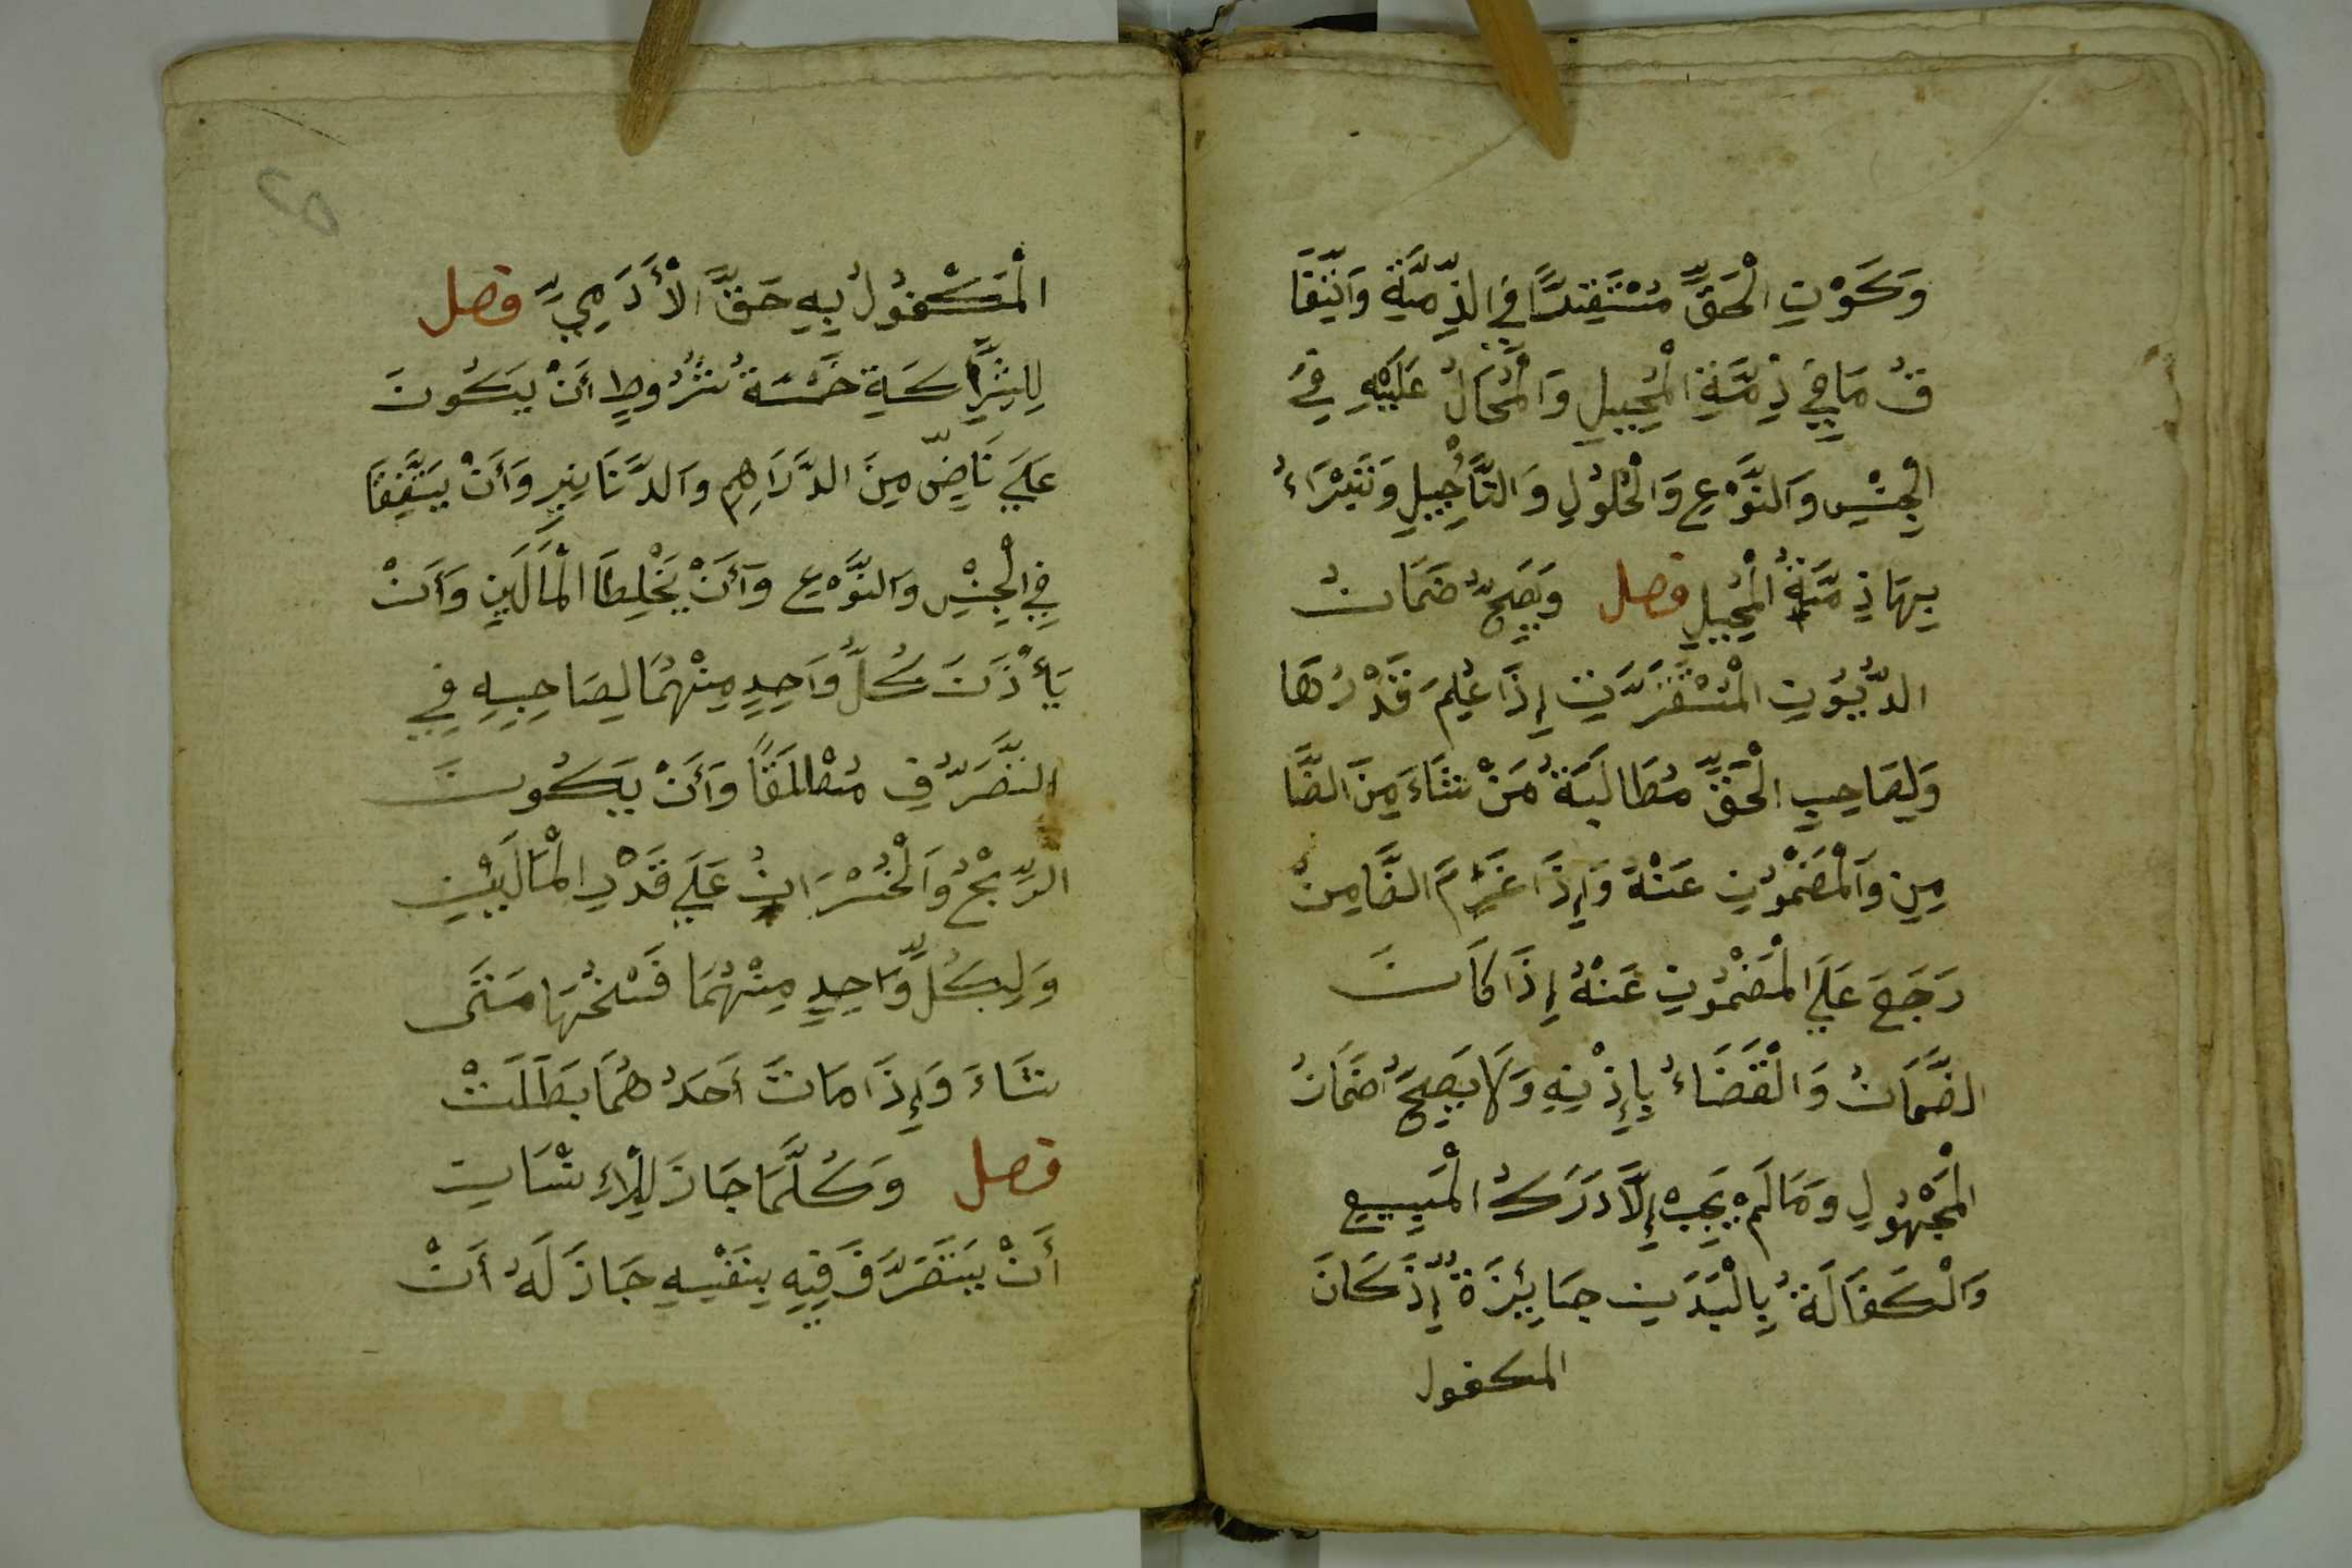 وَكَوْنِ الْحَقِّ مُسْتَقِرًّا فِي الذِّمَّةِ وَاتِّفَا
قُ مَا فِي ذِمَّةِ الْمُحِيلِ وَالْمُحَالُ عَلَيْهِ فِي
الْجِنْسِ وَالنَّوْعِ وَالْحُلُولِ وَالتَّأْجِيلِ وَتَبْرَاءُ
بِهَا ذِمَّةُ الْمُحِيلِ فصل وَيَصِحُّ ضَمَانُ
الدُّيُونِ الْمُسْتَقَرَّةِ إِذَا عُلِمَ قَدْرُهَا
وَلِصَاحِبِ الْحَقِّ مُطَالَبَةُ مَنْ شَاءَ مِنَ الضَّا
مِنِ وَالْمَضْمُونِ عَنْهُ وَإِذَا غَرِمَ الضَّامِنُ
رَجَعَ عَلَى الْمَضْمُونِ عَنْهُ إِذَا كَانَ
الضَّمَانُ وَالْقَضَاءُ بِإِذْنِهِ وَلَا يَصِحُّ ضَمَانُ
الْمَجْهُولِ وَمَا لَمْ يَجِبْ إِلَّا دَرَكُ الْمَبِيعِ
وَالْكَفَالَةُ بِالْبَدَنِ جَائِزَةٌ إِذَ كَانَ
المكفول
٢٥
الْمَكْفُولُ بِهِ حَقَّ الْأَدَمِيِّ فصل
لِلشِّرَاكَةِ خَمْسَةُ شُرُوطٍ أَنْ يَكُونَ
عَلَي نَاضٍّ مِنَ الدَّرَاهِمِ وَالدَّنَانِيرِ وَأَنْ يَتَّفِقَا
فِي الْجِنْسِ وَالنَّوْعِ وَأَنْ يَخْلِطَا الْمَالَيْنِ وَأَنْ
يَأْذَنَ كُلُّ وَاحِدٍ مِنْهُمَا لِصَاحِبِهِ فِي
التَّصَرُّفِ مُطْلَقًا وَأَنْ يَكُونَ
الرِّبْحُ وَالْخُسْرَانُ عَلَي قَدْرِ الْمَالَيْنِ
وَلِكُلِّ وَاحِدٍ مِنْهُمَا فَسْخُهَا مَتَى
شَاءَ وَإِذَا مَاتَ أَحَدُهُمَا بَطَلَتْ
فصل وَكُلَّمَا جَازَ لِلْإِنْسَانِ
أَنْ يَتَصَرَّفَ فِيهِ بِنَفْسِهِ جَازَ لَهُ أَنْ